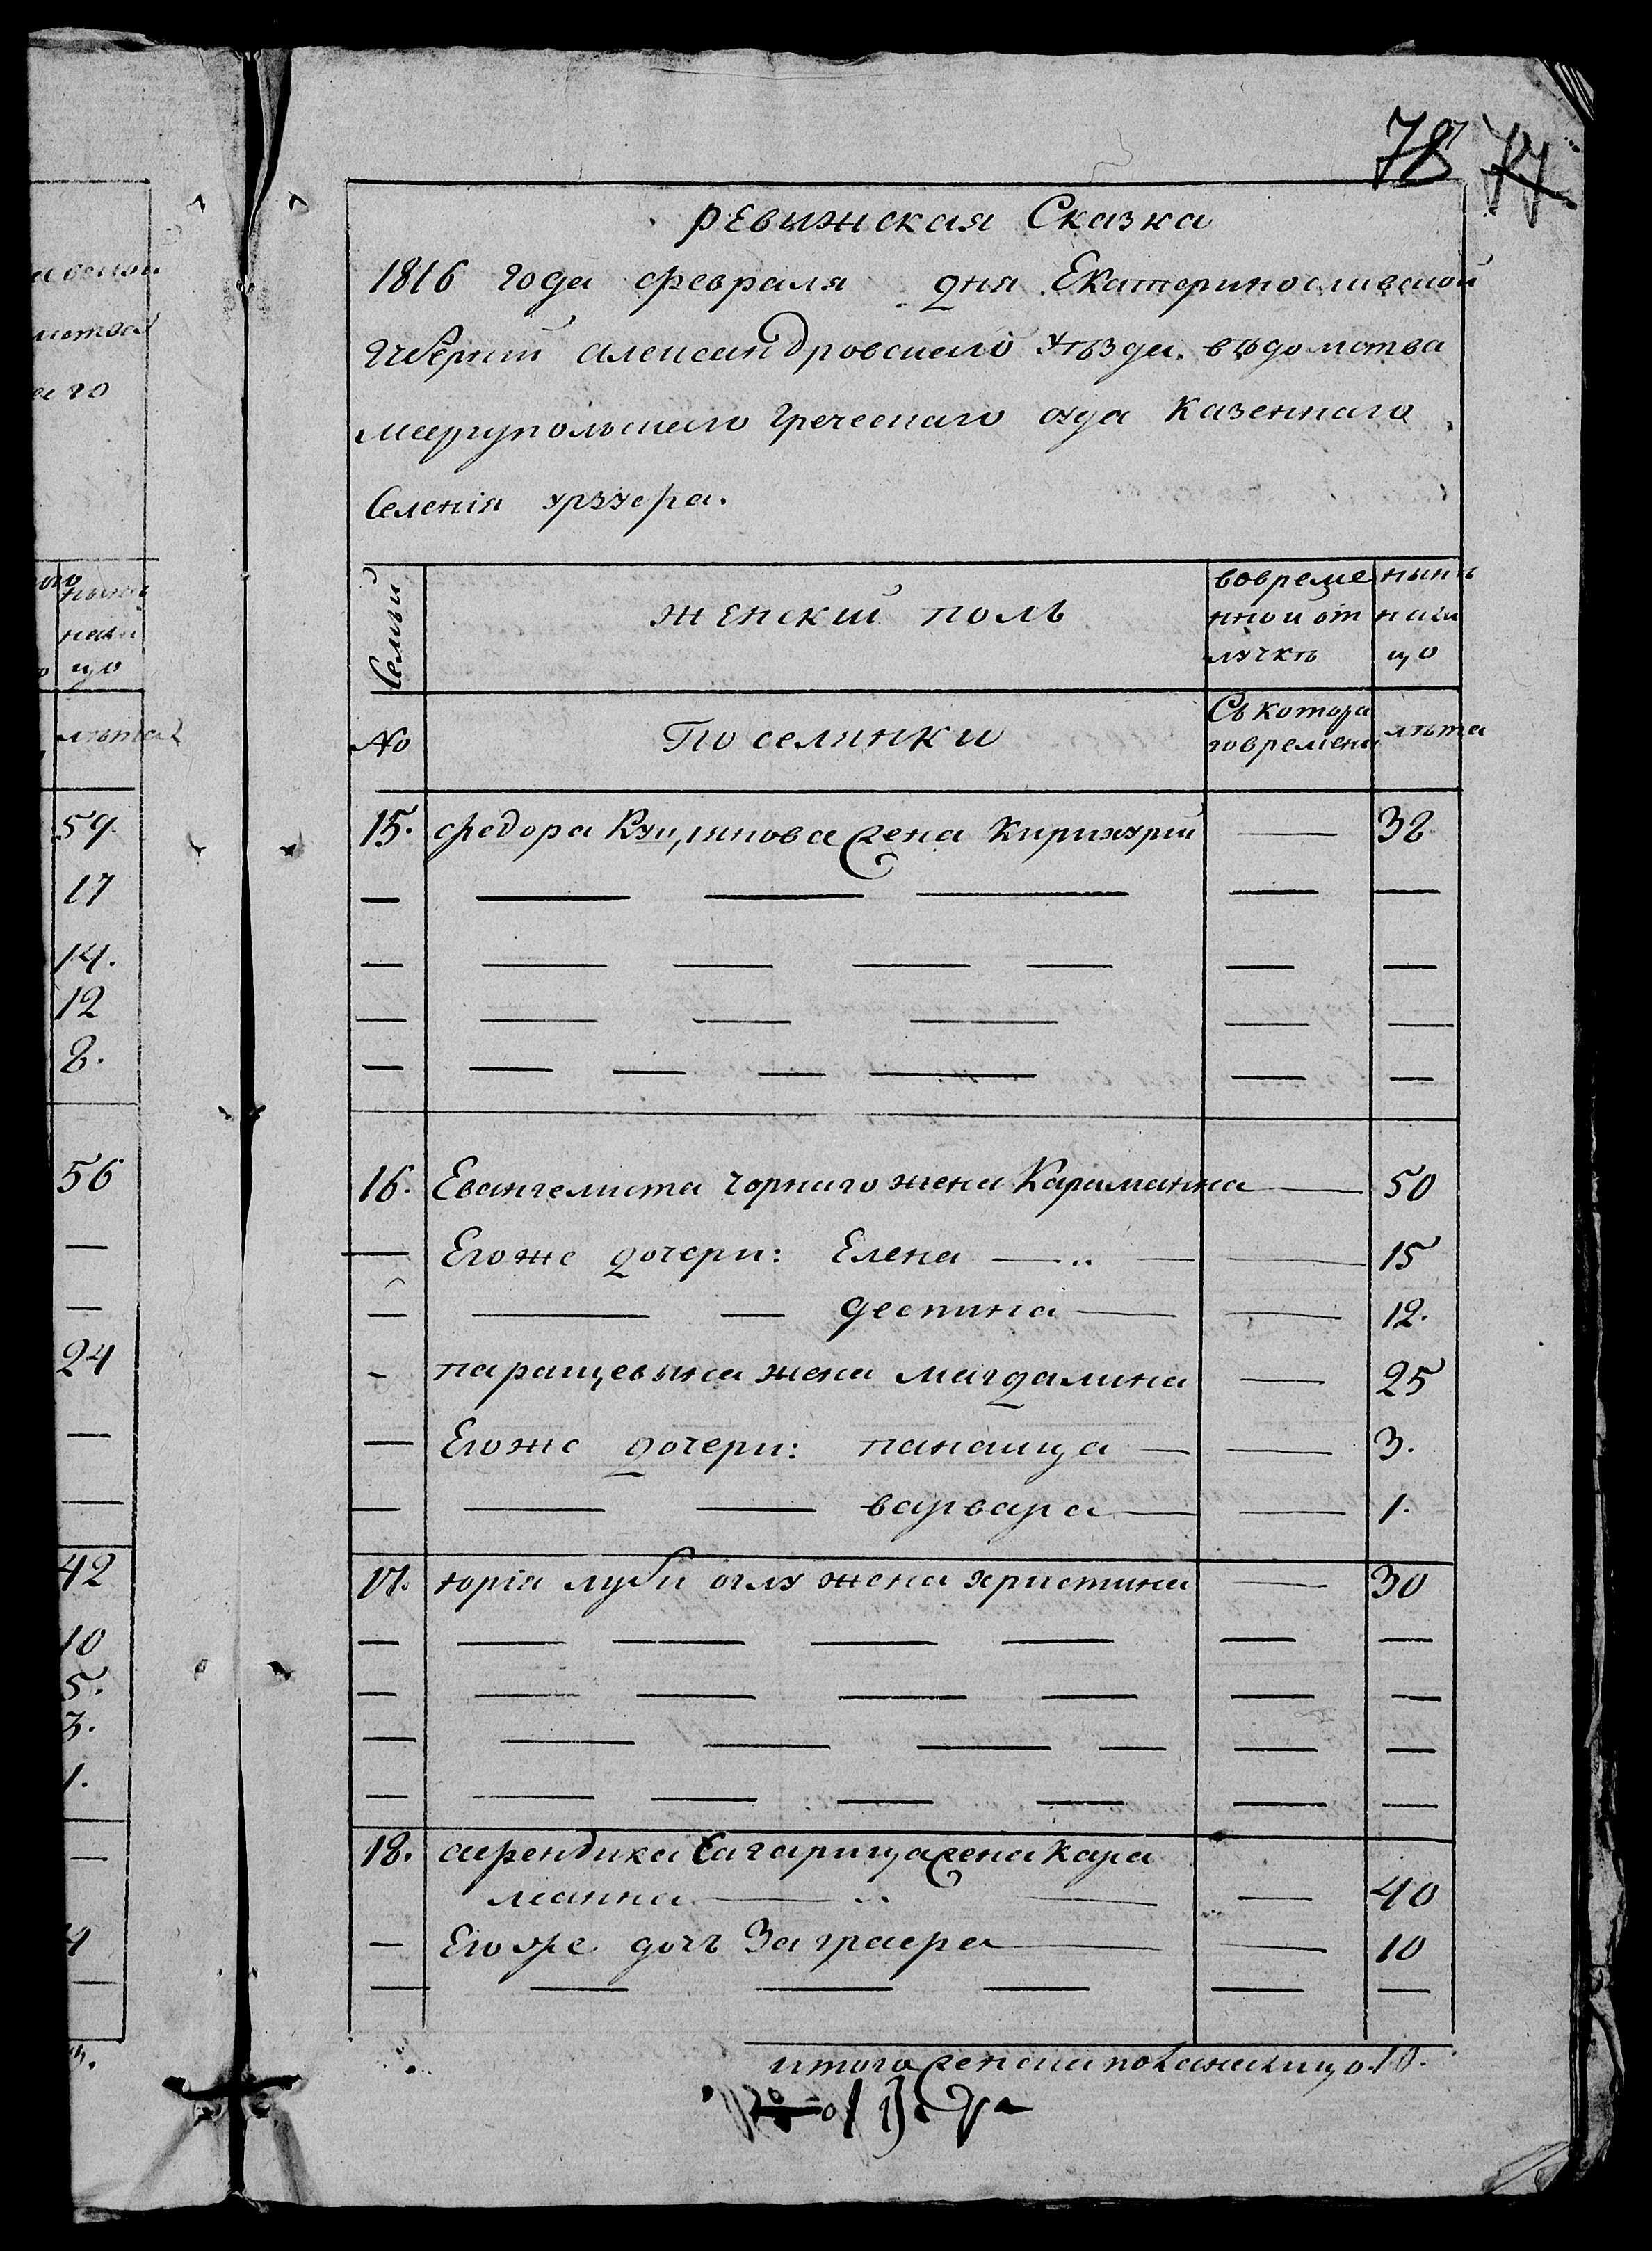 78 77
ревижская Сказка
1816 года февраля дня Екатеринославской
Губернии александровскаго уѣзда. вѣдомства
мариупольскаго греческаго суда Казеннаго
Селенія урзуфа.
Семьи
женский полъ
вовреме
нной от
лучкѣ
нынѣ
нали
цо
№
Поселянки
Съ котора
говремени
лѣта
15. федора Куцлинова жена Кириакуи — 38
16. Евангелиста чорнаго жена Караманна — 50
— Егоже дочери: Елена — „ — — 15
— — — деспина — — 12.
- паращевына жена магдалина — 25
— Егоже дочери: панаица — — 3.
— — — варвара — — 1.
17. юрія луби оглу жена христина — 30
18. афендика Сагарица жена кара
манна — „ — — 40
— Егоже дочь Заграфа — — 10
итого женска пола налицо 10.
нынѣ
нали
цо
лѣта
59.
17
14.
12
8.
56
—
—
24
—
—
42
10
5.
3.
1.
—
4
—